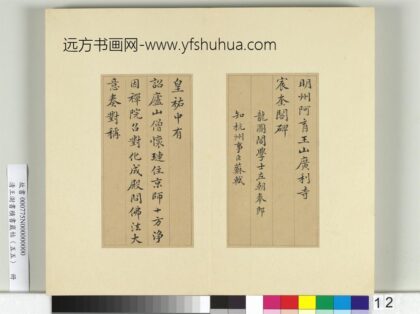 远方书画网-www.yfshuhua.com
明州阿育王山廣利寺
宸奎閣碑
龍圖閣學士左朝奉郎
知杭州事臣蘇軾
皇祐中有
詔廬山僧懷璉住京師十方淨
因禪院召對化成殿問佛法大
意奏對稱
故書000775N000000000
清王澍書積書巖帖（五五） 冊
12